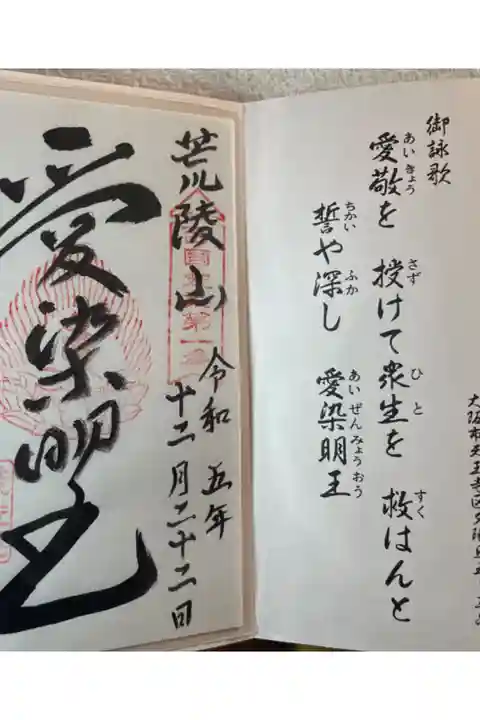 大阪市天王寺区夕陽丘五
御詠歌
あいきょう さず ひと すく
愛敬を 授けて衆生を 救はんと
ちかい ふか あいぜんみょうおう
誓や深し 愛染明王
荒陵山
令和五年
十二月二十二日
愛染明王